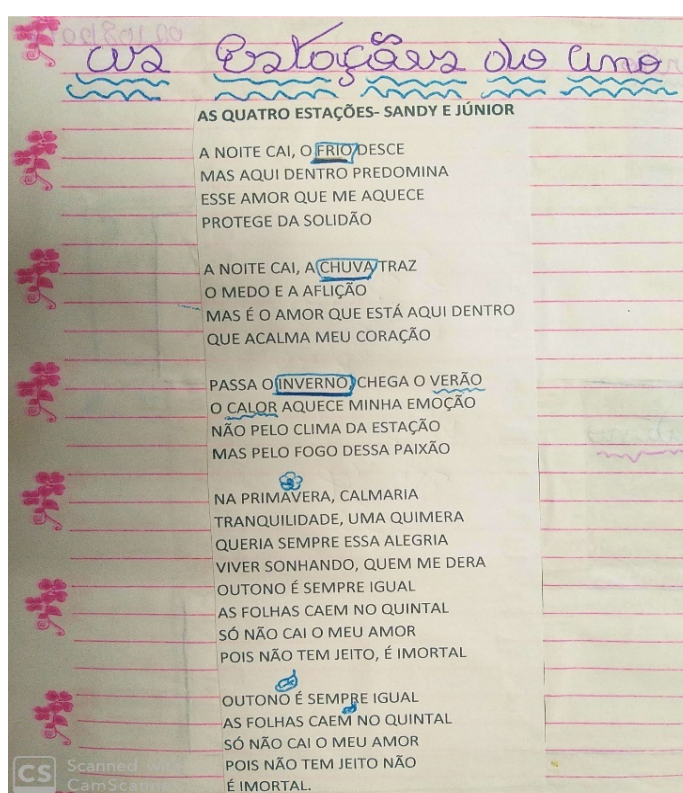 as Estações do ano
AS QUATRO ESTAÇÕES- SANDY E JÚNIOR
A NOITE CAI, O FRIO DESCE
MAS AQUI DENTRO PREDOMINA
ESSE AMOR QUE ME AQUECE
PROTEGE DA SOLIDÃO
A NOITE CAI, A CHUVA TRAZ
O MEDO E A AFLIÇÃO
MAS É O AMOR QUE ESTÁ AQUI DENTRO
QUE ACALMA MEU CORAÇÃO
PASSA O INVERNO, CHEGA O VERÃO
O CALOR AQUECE MINHA EMOÇÃO
NÃO PELO CLIMA DA ESTAÇÃO
MAS PELO FOGO DESSA PAIXÃO
NA PRIMAVERA, CALMARIA
TRANQUILIDADE, UMA QUIMERA
QUERIA SEMPRE ESSA ALEGRIA
VIVER SONHANDO, QUEM ME DERA
OUTONO É SEMPRE IGUAL
AS FOLHAS CAEM NO QUINTAL
SÓ NÃO CAI O MEU AMOR
POIS NÃO TEM JEITO, É IMORTAL
OUTONO É SEMPRE IGUAL
AS FOLHAS CAEM NO QUINTAL
SÓ NÃO CAI O MEU AMOR
POIS NÃO TEM JEITO NÃO
É IMORTAL.
CS Scanned with
CamScanner